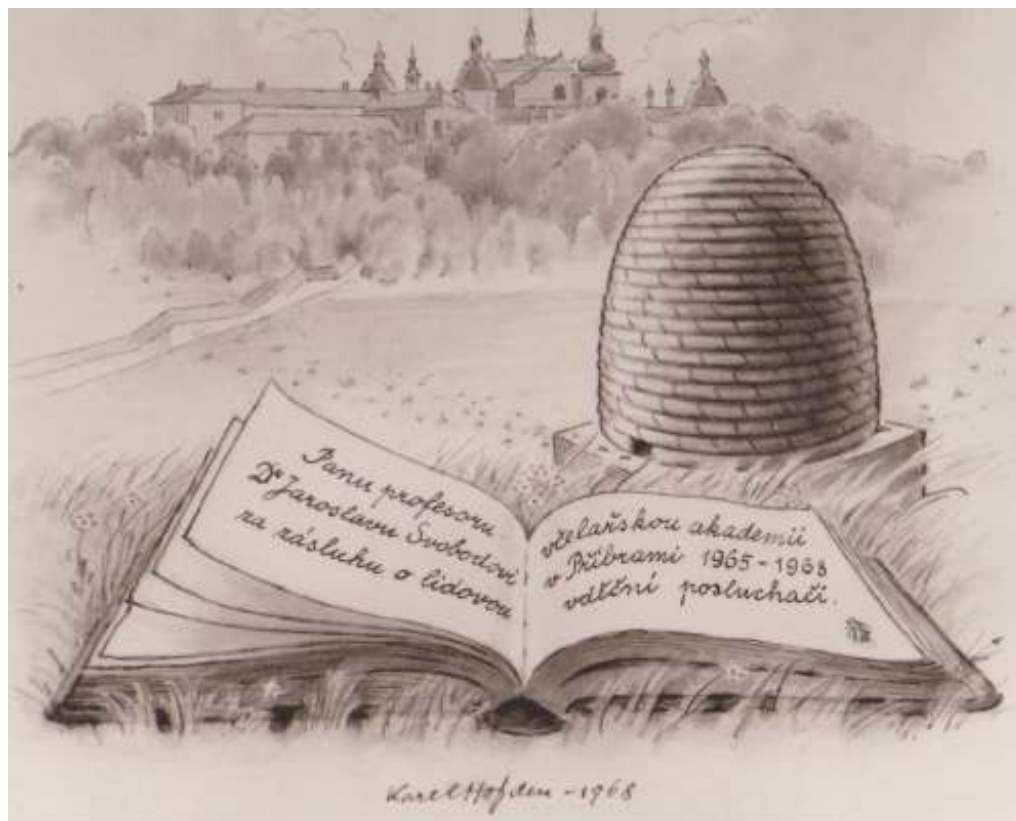 Panu profesoru
Dr Jaroslavu Svobodovi
za zásluhu o lidovou
včelařskou akademii
v Příbrami 1965-1968
vděční posluchači.
Karel Hofden - 1968